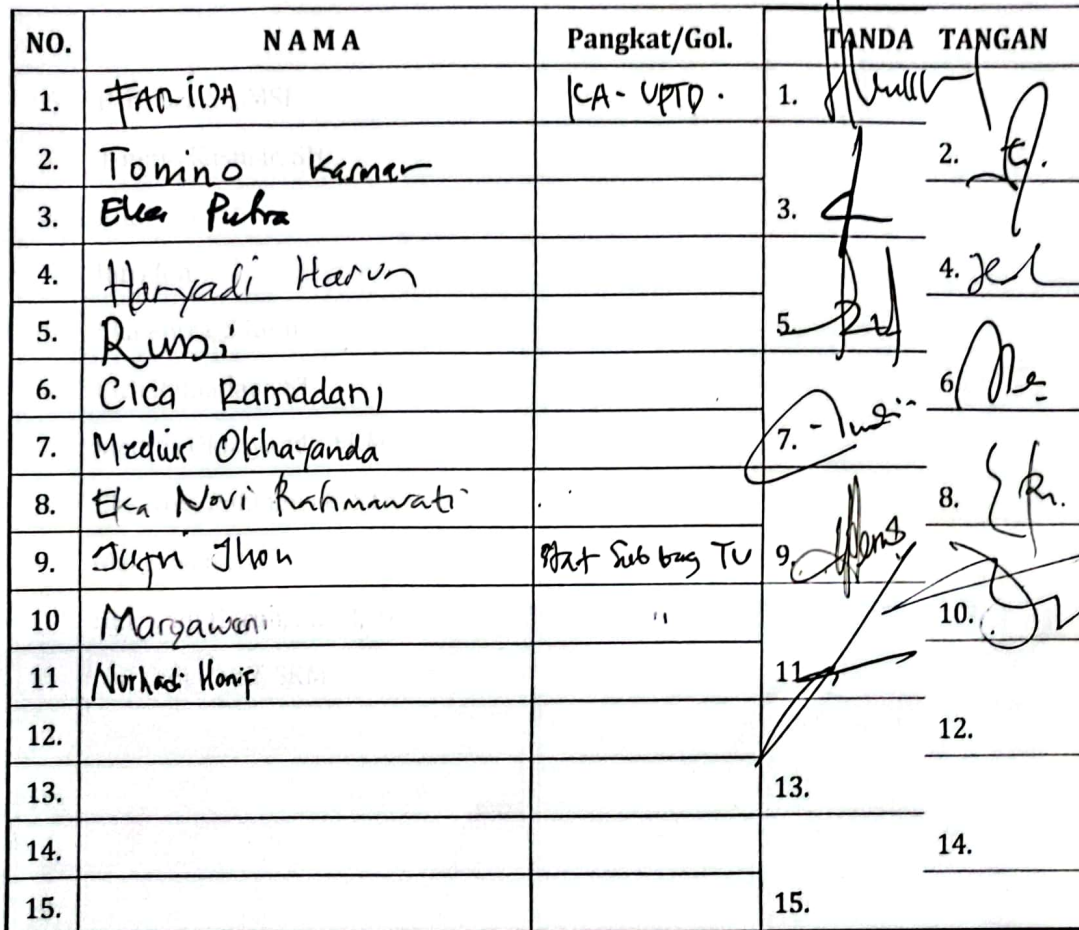 NO. NAMA Pangkat/Gol. TANDA TANGAN
1. FARIDA KA-UPTD. 1.
2. Tonino Kasmar 2.
3. Eka Putra 3.
4. Haryadi Harun 4.
5. Rusdi 5.
6. Cica Ramadani 6
7. Okhayanda 7.
8. Eka Novi Rahmawati 8.
9. Jhon Staf Sub bag TU 9.
10 Margaweni " 10.
11 Nurhadi Hanif 11
12. 12.
13. 13.
14. 14.
15. 15.